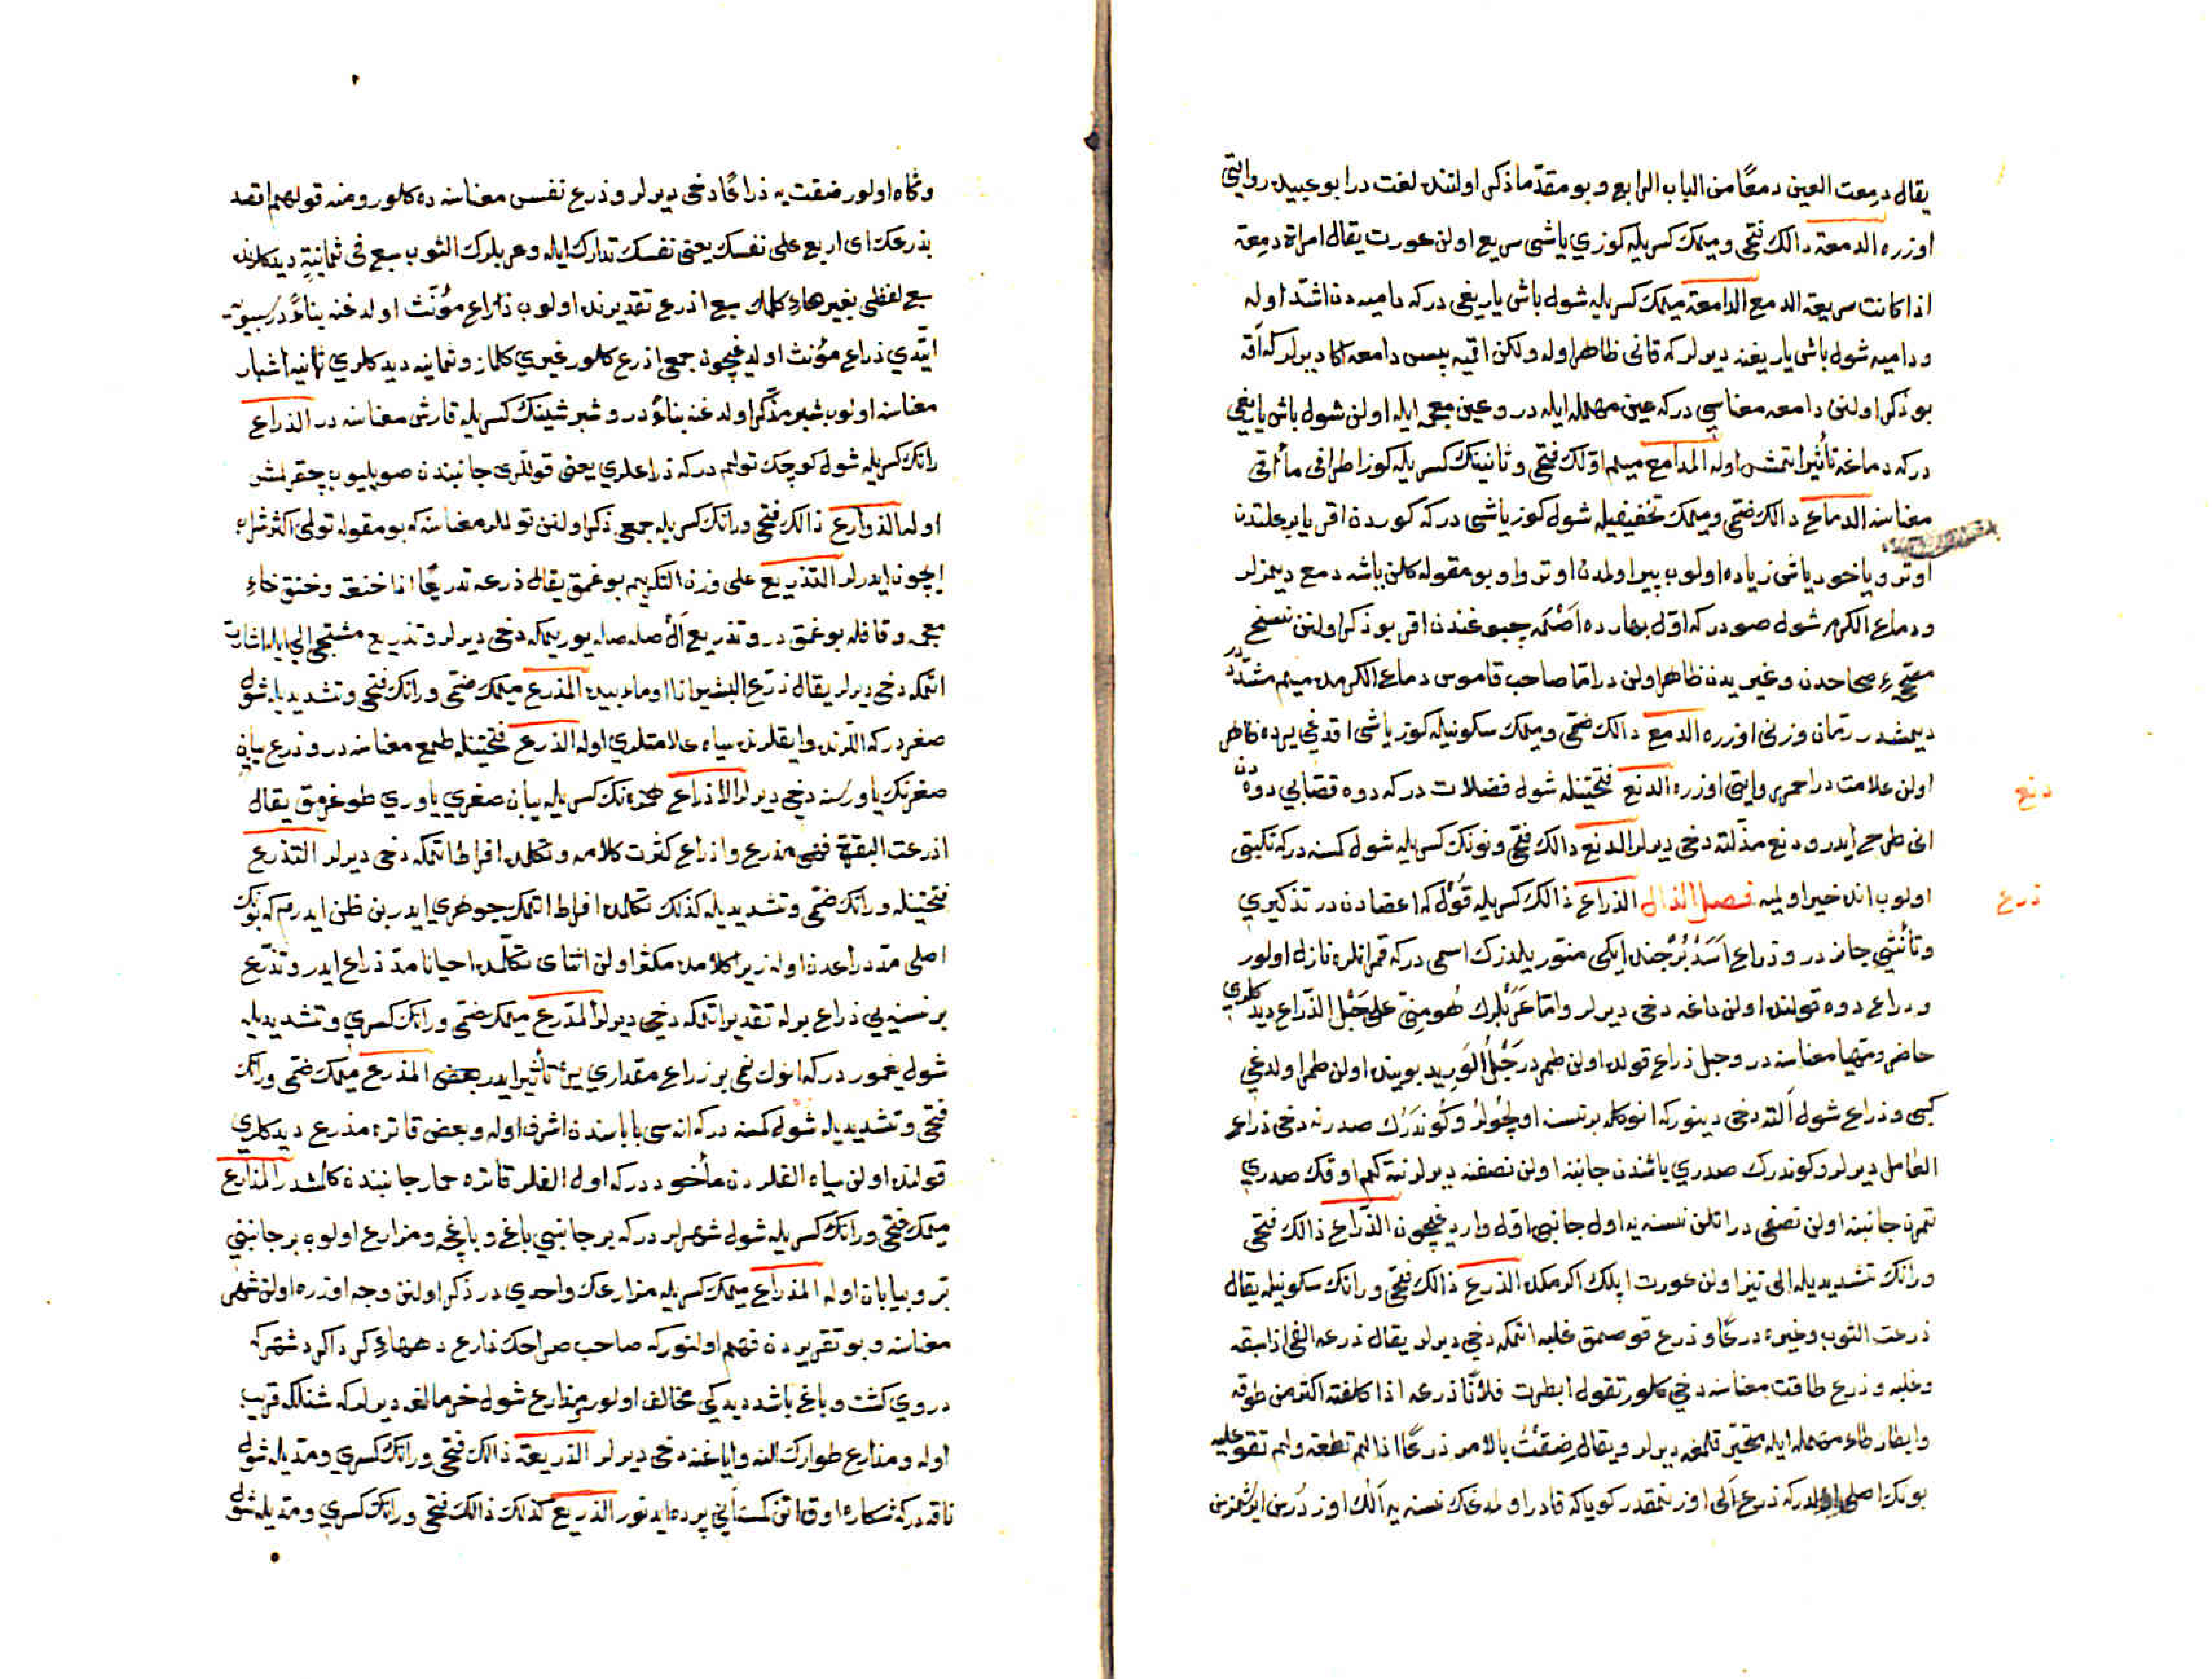 يقال دمعت العين دمعًا من الباب الرابع وبو مقدّما ذكر اولنندن لغت در ابو عبيده روايتى
اوزره الدمعة دالك فتحى وميمك كسريله كوزي ياشى سريع اولن عورت يقال امراة دمعة
اذا كانت سريعة الدمع الدامعة ميمك كسريله شول باش ياريغى در كه داميه دن اشدّ اوله
وداميه شول باش ياريغنه ديرلر كه قانى ظاهر اوله ولكن اقميه پس دامعه اكا ديرلر كه اقه
بو ذكر اولنن دامعه معناسي در كه عين مهمله ايله در وغين معجمه ايله اولن شول باش ياريغى
در كه دماغه تأثير ايتمش اوله المدامع ميم اوّلك فتحى وثانينك كسريله كوز اطرافى مأقى
معناسنه الدماع دالك ضمّى وميمك تخفيفيله شول كوز ياشى در كه كوردن اقر يا بر علتدن
اوترو ياخود ياش زياده اولوب پير اولمدن اوترو او بو مقوله كلن ياشه دمع ديمزلر
ودماع الكرم شول صودر كه اوّل بهارده اصمه چبوغندن اقر بو ذكر اولنن نسخ
مصحّحهء صحاحدن وغيريدن ظاهر اولن در امّا صاحب قاموس دماع الكرمده ميم مشدّد در
ديمشدر رمّان وزنى اوزره الدمع دالك ضمّى وميمك سكونيله كوز ياشى اقدغي يرده ظاهر
اولن علامت در احمر روايتى اوزره الدنع فتحتينله شول فضلات در كه دوه قصّابي دوه دن
دنع
انى طرح ايدر ودنع مذلّته دخى ديرلر الدنع دالك فتحى ونونك كسريله شول كسنه در كه نكبتى
اولوب انده خير اولميه فصل الذال الذراع ذالك كسريله قول كه اعضادن در تذكيري
ذرع
وتأنيثي جائز در وذراع اسد برجنده ايكى منوّر يلدزك اسمى در كه قمر انلره نازل اولور
وذراع دوه قولنده اولن داغه دخى ديرلر وامّا عربلرك هو منّي على حبل الذراع ديدكلري
حاضر ومهيا معناسنه در وحبل ذراع قولده اولن طمر در حبل الوريد بوينده اولن طمر اولدغي
كبى وذراع شول آلته دخى دينور كه انوكله بر نسنه اولچولر وكوندرك صدرنه دخى ذراع
العامل ديرلر وكوندرك صدري باشندن جانبنه اولن نصفنه ديرلر نته كم اوقك صدري
تمرن جانبنه اولن نصفى در اتلن نسنه يه اول جانبى اوّل وارديغيچون الذراع ذالك فتحى
ورانك تشديديله الى تيز اولن عورت ايلك اكرمكده الذرع ذالك فتحى ورانك سكونيله يقال
ذرعت الثوب وغيره درعًا وذرع قوصمق غلبه اتمكه دخي ديرلر يقال ذرعه القى اذا سبقه
وغلبه وذرع طاقت معناسنه دخي كلور تقول ابطرت فلانًا ذرعه اذا كلفته اكثر من طوقه
وابطار طاء مهمله ايله متحيّر قلمغه ديرلر ويقال ضقت بالامر ذرعًا اذا لم تطقه ولم تقو عليه
بونك اصلى اولدر كه ذرع الى اوزنمقدر كويا كه قادر اولمدغك نسنه يه الك اوزدرسن ايرشمزسن
وكاه اولور ضقت به ذراعًا دخى ديرلر وذرع نفس معناسنه ده كلور ومنه قولهم اقصد
بذرعك اى اربع على نفسك يعنى نفسك تدارك ايله وعربلرك الثوب سبع فى ثمانية ديدكلرنده
سبع لفظى بغير هاء كلمك سبع اذرع تقديرنده اولوب ذراع مؤنّث اولدغنه بناءً در سيبويه
ايتدي ذراع مؤنث اولدغيچون جمعى اذرع كلور غيري كلماز وثمانيه ديدكلري ثمانية اشبار
معناسنه اولوب شبر مذكّر اولدغنه بناءً در وشبر شينك كسريله قارش معناسنه در الذراع
رانك كسريله شول كوچك تولم در كه ذراعلري يعنى قوللرى جانبندن صويليوب چقرلمش
اوله الذوارع ذالك فتحى ورانك كسريله جمعى ذكر اولنن تولملر معناسنه كه بو مقوله تولمى اكثر شراب
ايچون ايدرلر التذريع على وزن التكريم بوغمق يقال ذرعه تذريعًا اذا خنقه وخنق خاء
معجمه وقافله بوغمق در وتذريع ال صله صله يوريمكه دخى ديرلر وتذريع مشتجى الي ايله اشارت
اتمكه دخى ديرلر يقال ذرّع البشير اذا اومأ بيده المذرّع ميمك ضمّى ورانك فتحى وتشديديله شول
صغر در كه اللرنده وايقلرنده سياه علامتلري اوله الذرع فتحتينله طمع معناسنه در وذرع يابان
صغرنك ياورسنه دخى ديرلر الاذراع همزه نك كسريله يبان صغري ياوري طوغرمق يقال
اذرعت البقرة فهى مذرع واذراع كثرت كلامه وتكلمده افراط اتمكه دخى ديرلر التذرع
فتحتينله ورانك ضمّى وتشديديله كذلك تكلمده افراط اتمك جوهري ايدر بن ظن ايدرم كه بونك
اصلى مدّ ذراعدن اوله زيرا كلامده مكثر اولن اثناى تكلّمده احيانا مدّ ذراع ايدر وتذرّع
بر نسنه يي ذراع برله تقدير اتمكه دخى ديرلر المذرّع ميمك ضمّى ورانك كسري وتشديديله
شول يغمور در كه انوك نمى بر ذراع مقداري يره تأثير ايدر بعضى المذرع ميمك ضمّى ورانك
فتحى وتشديديله شول كسنه در كه اناسى باباسندن اشرف اوله وبعض قاتره مذرع ديدكلري
قولنده اولن سياه القلردن مأخوددر كه اول القلر قاتره حمار جانبندن كلمشدر المذارع
ميمك فتحى ورانك كسريله شول شهرلر در كه بر جانبي باغ وباغچه ومزارع اولوب بر جانبي
برّ وبيابان اوله المذراع ميمك كسريله مزارعك واحدي در ذكر اولنن وجه اوزره اولن شهر
معناسنه وبو تقريردن فهم اولنور كه صاحب صراحك مذارع دهها كرداكرد شهر كه
دروي كشت وباغ باشد ديدكي مخالف اولور مذارع شول خرما لغه ديرلر كه شنلكه قريب
اوله ومذارع طوارك النه واياغنه دخى ديرلر الذريعة ذالك فتحى ورانك كسري ومدّيله شول
ناقه در كه شكاره اوق اتن كسنه آني پرده ايدنور الذريع كذلك ذالك فتحى ورانك كسري ومدّيله شول